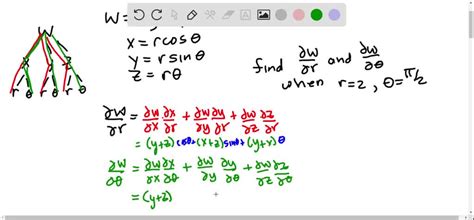 W
W =
x = r cos θ
y = r sin θ
z = rθ
find ∂w/∂r and ∂w/∂θ
when r=2, θ=π/2
r θ r θ r θ
∂w/∂r = ∂w/∂x ∂x/∂r + ∂w/∂y ∂y/∂r + ∂w/∂z ∂z/∂r
= (y+z) cosθ + (x+z) sinθ + (y+x) θ
∂w/∂θ = ∂w/∂x ∂x/∂θ + ∂w/∂y ∂y/∂θ + ∂w/∂z ∂z/∂θ
= (y+z)